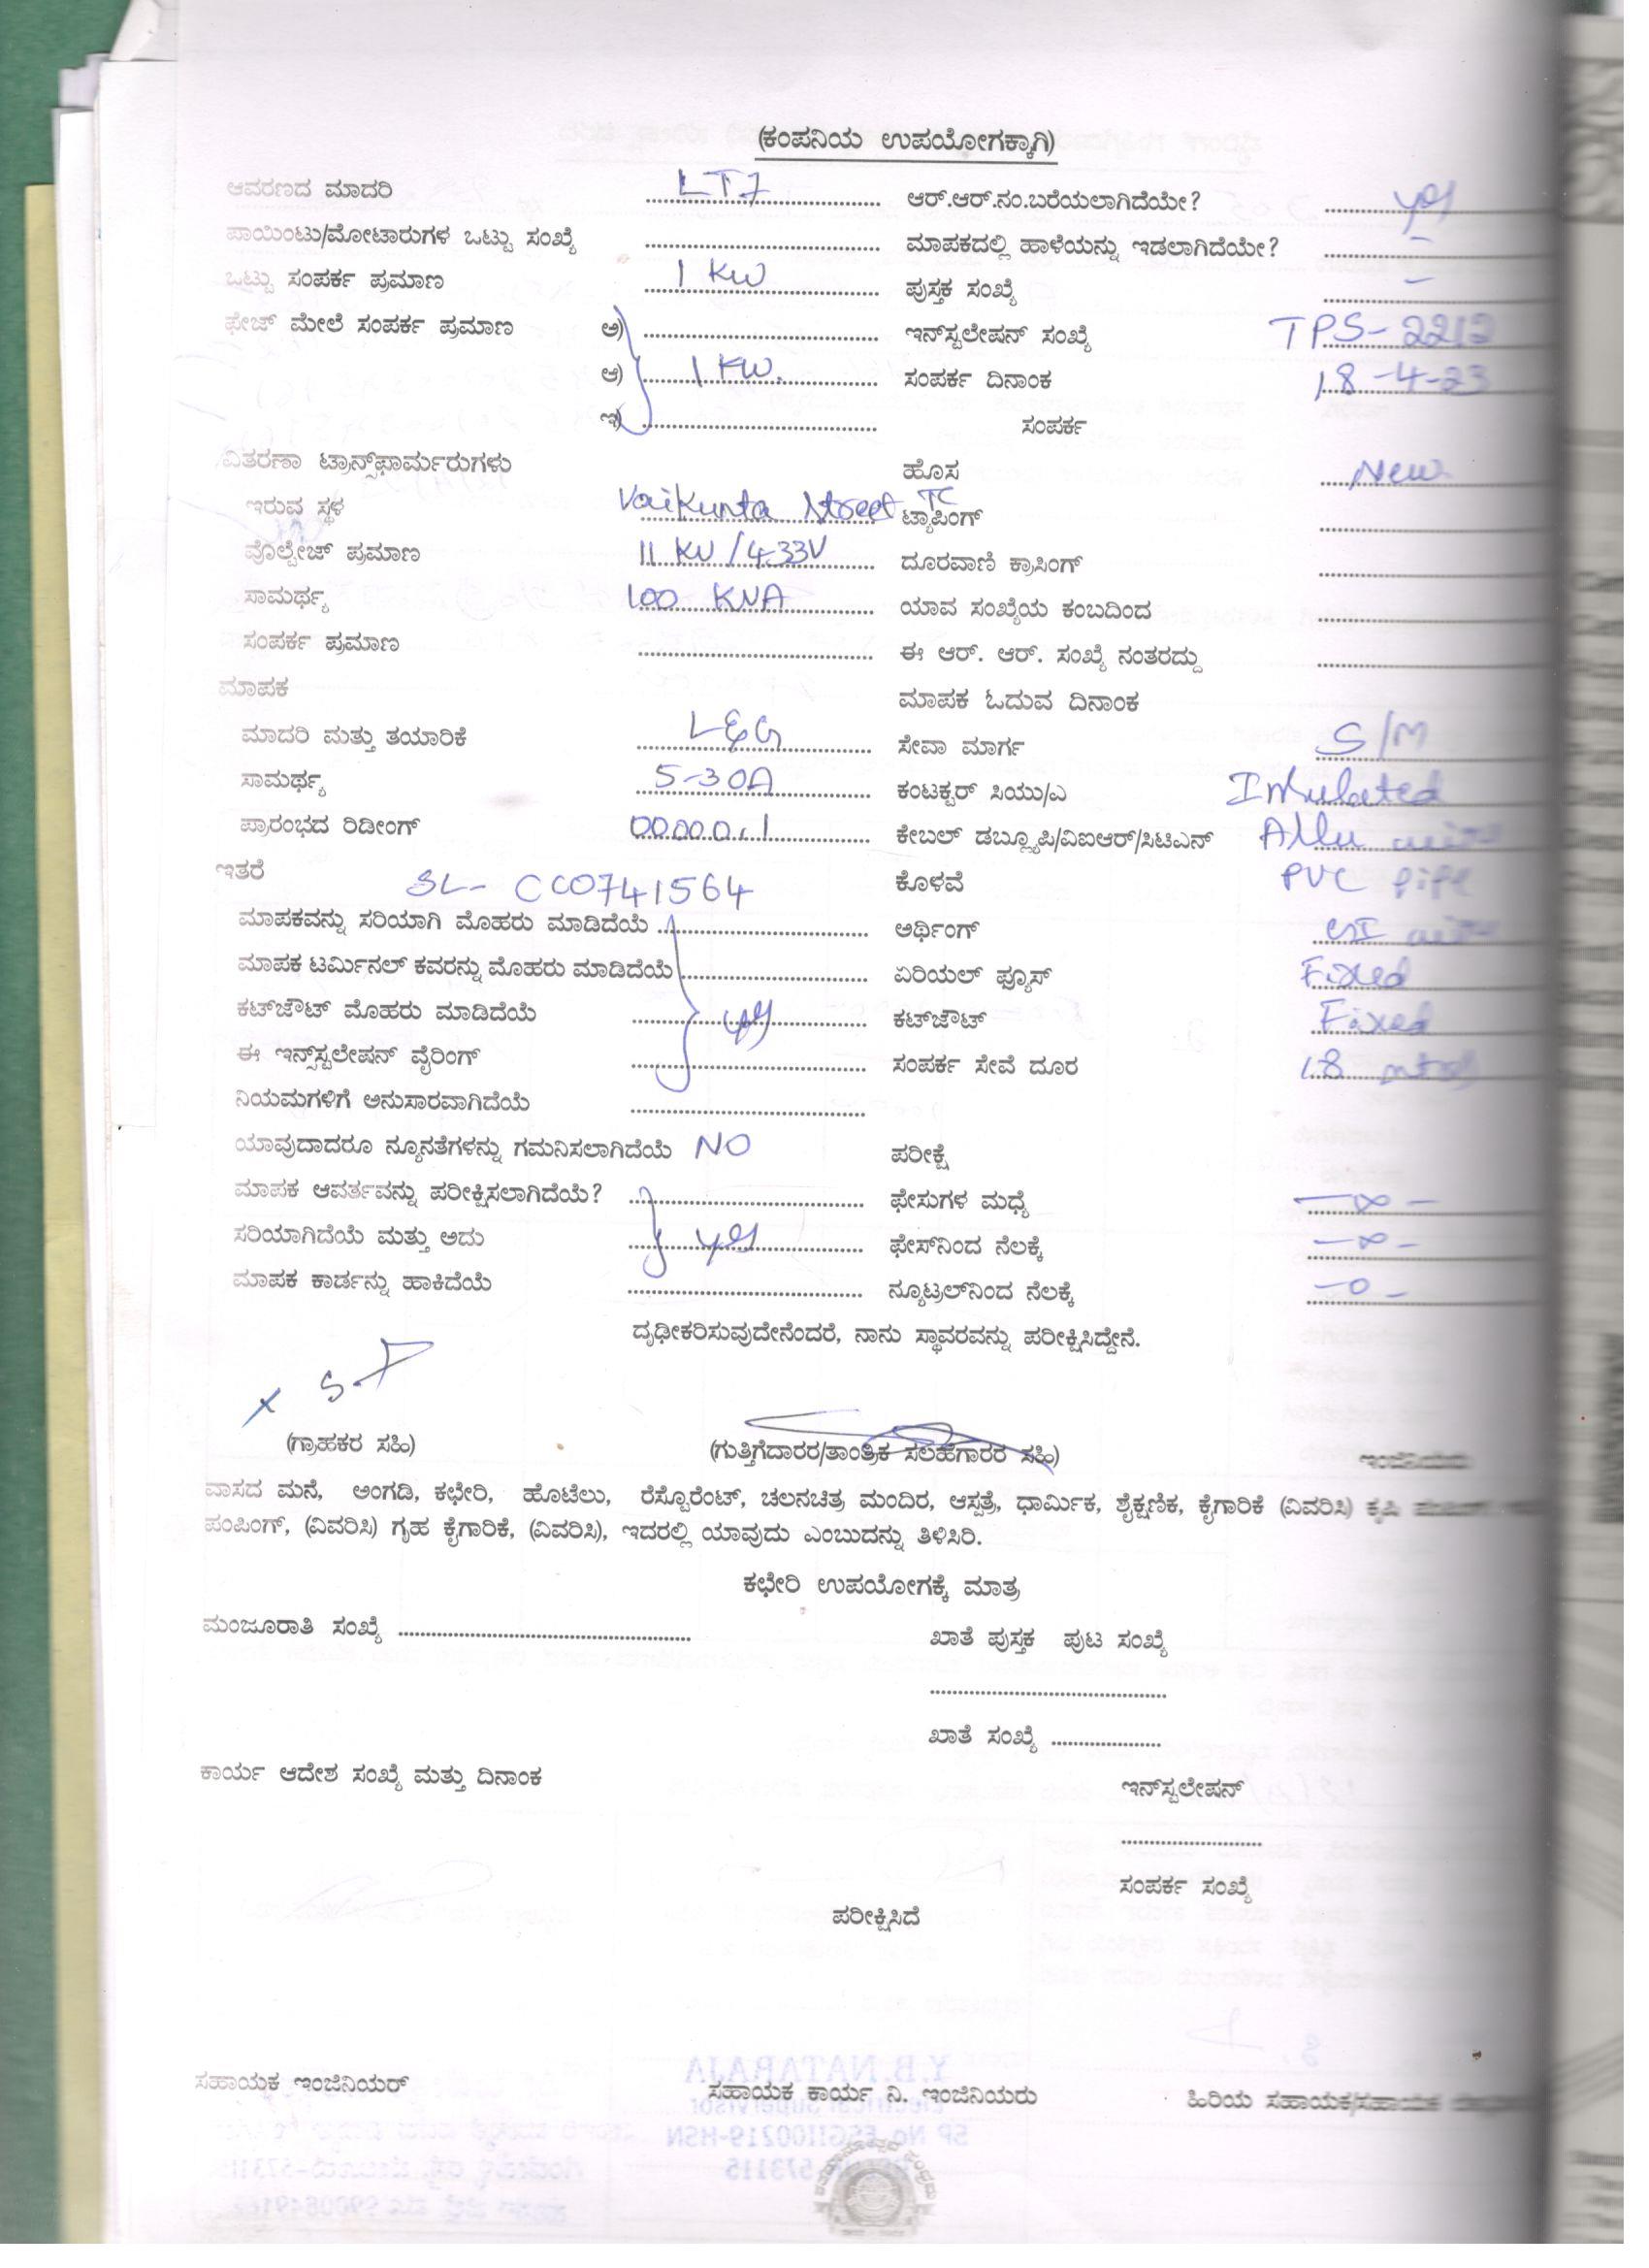 (ಕಂಪನಿಯ ಉಪಯೋಗಕ್ಕಾಗಿ)
ಆವರಣದ ಮಾದರಿ LT7 ಆರ್.ಆರ್.ನಂ.ಬರೆಯಲಾಗಿದೆಯೇ? yes
ಪಾಯಿಂಟು/ಮೋಟಾರುಗಳ ಒಟ್ಟು ಸಂಖ್ಯೆ ಮಾಪಕದಲ್ಲಿ ಹಾಳೆಯನ್ನು ಇಡಲಾಗಿದೆಯೇ? -
ಒಟ್ಟು ಸಂಪರ್ಕ ಪ್ರಮಾಣ 1 KW ಪುಸ್ತಕ ಸಂಖ್ಯೆ -
ಫೇಜ್ ಮೇಲೆ ಸಂಪರ್ಕ ಪ್ರಮಾಣ ಅ) ಇನ್‌ಸ್ಟಲೇಷನ್ ಸಂಖ್ಯೆ TPS-2212
ಆ) 1 KW. ಸಂಪರ್ಕ ದಿನಾಂಕ 18-4-23
ಇ) ಸಂಪರ್ಕ
ವಿತರಣಾ ಟ್ರಾನ್ಸ್‌ಫಾರ್ಮರುಗಳು ಹೊಸ New
ಇರುವ ಸ್ಥಳ Vaikunta Street TC ಟ್ಯಾಪಿಂಗ್
ವೊಲ್ಟೇಜ್ ಪ್ರಮಾಣ 11 KV/433V ದೂರವಾಣಿ ಕ್ರಾಸಿಂಗ್
ಸಾಮರ್ಥ್ಯ 100 KVA ಯಾವ ಸಂಖ್ಯೆಯ ಕಂಬದಿಂದ
ಸಂಪರ್ಕ ಪ್ರಮಾಣ ಈ ಆರ್. ಆರ್. ಸಂಖ್ಯೆ ನಂತರದ್ದು
ಮಾಪಕ ಮಾಪಕ ಓದುವ ದಿನಾಂಕ
ಮಾದರಿ ಮತ್ತು ತಯಾರಿಕೆ L&G ಸೇವಾ ಮಾರ್ಗ S/M
ಸಾಮರ್ಥ್ಯ 5-30A ಕಂಟಕ್ಟರ್ ಸಿಯು/ಎ Insulated
ಪ್ರಾರಂಭದ ರಿಡೀಂಗ್ 00000.1 ಕೇಬಲ್ ಡಬ್ಲ್ಯೂಪಿ/ವಿಐಆರ್/ಸಿಟಿಎನ್ Allu wire
ಇತರೆ SL- CC0741564 ಕೊಳವೆ PVC pipe
ಮಾಪಕವನ್ನು ಸರಿಯಾಗಿ ಮೊಹರು ಮಾಡಿದೆಯೆ ಅರ್ಥಿಂಗ್ GI wire
ಮಾಪಕ ಟರ್ಮಿನಲ್ ಕವರನ್ನು ಮೊಹರು ಮಾಡಿದೆಯೆ ಏರಿಯಲ್ ಫ್ಯೂಸ್ Fixed
ಕಟ್‌ಜೌಟ್ ಮೊಹರು ಮಾಡಿದೆಯೆ yes ಕಟ್‌ಜೌಟ್ Fixed
ಈ ಇನ್ಸ್‌ಸ್ಟಲೇಷನ್ ವೈರಿಂಗ್ ಸಂಪರ್ಕ ಸೇವೆ ದೂರ 18 mtrs
ನಿಯಮಗಳಿಗೆ ಅನುಸಾರವಾಗಿದೆಯೆ
ಯಾವುದಾದರೂ ನ್ಯೂನತೆಗಳನ್ನು ಗಮನಿಸಲಾಗಿದೆಯೆ NO ಪರೀಕ್ಷೆ
ಮಾಪಕ ಆವರ್ತವನ್ನು ಪರೀಕ್ಷಿಸಲಾಗಿದೆಯೆ? ಫೇಸುಗಳ ಮಧ್ಯೆ -∞-
ಸರಿಯಾಗಿದೆಯೆ ಮತ್ತು ಅದು yes ಫೇಸ್‌ನಿಂದ ನೆಲಕ್ಕೆ -∞-
ಮಾಪಕ ಕಾರ್ಡನ್ನು ಹಾಕಿದೆಯೆ ನ್ಯೂಟ್ರಲ್‌ನಿಂದ ನೆಲಕ್ಕೆ -0-
ದೃಢೀಕರಿಸುವುದೇನೆಂದರೆ, ನಾನು ಸ್ಥಾವರವನ್ನು ಪರೀಕ್ಷಿಸಿದ್ದೇನೆ.
(ಗ್ರಾಹಕರ ಸಹಿ) (ಗುತ್ತಿಗೆದಾರರ/ತಾಂತ್ರಿಕ ಸಲಹೆಗಾರರ ಸಹಿ) ಇಂಜಿನಿಯರು
ವಾಸದ ಮನೆ, ಅಂಗಡಿ, ಕಛೇರಿ, ಹೊಟೆಲು, ರೆಸ್ಟೊರೆಂಟ್, ಚಲನಚಿತ್ರ ಮಂದಿರ, ಆಸ್ಪತ್ರೆ, ಧಾರ್ಮಿಕ, ಶೈಕ್ಷಣಿಕ, ಕೈಗಾರಿಕೆ (ವಿವರಿಸಿ) ಕೃಷಿ
ಪಂಪಿಂಗ್, (ವಿವರಿಸಿ) ಗೃಹ ಕೈಗಾರಿಕೆ, (ವಿವರಿಸಿ), ಇದರಲ್ಲಿ ಯಾವುದು ಎಂಬುದನ್ನು ತಿಳಿಸಿರಿ.
ಕಛೇರಿ ಉಪಯೋಗಕ್ಕೆ ಮಾತ್ರ
ಮಂಜೂರಾತಿ ಸಂಖ್ಯೆ ಖಾತೆ ಪುಸ್ತಕ ಪುಟ ಸಂಖ್ಯೆ
ಖಾತೆ ಸಂಖ್ಯೆ
ಕಾರ್ಯ ಆದೇಶ ಸಂಖ್ಯೆ ಮತ್ತು ದಿನಾಂಕ ಇನ್‌ಸ್ಟಲೇಷನ್
ಸಂಪರ್ಕ ಸಂಖ್ಯೆ
ಪರೀಕ್ಷಿಸಿದೆ
ಸಹಾಯಕ ಇಂಜಿನಿಯರ್ ಸಹಾಯಕ ಕಾರ್ಯ ನಿ. ಇಂಜಿನಿಯರು ಹಿರಿಯ ಸಹಾಯಕ/ಸಹಾಯಕ